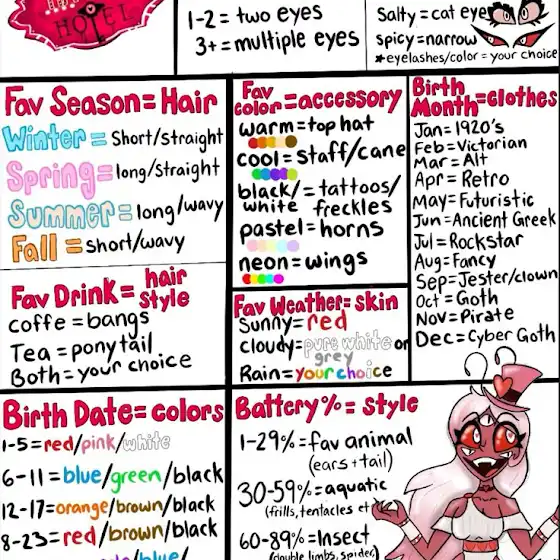 HOTEL
1-2 = two eyes
3+ = multiple eyes
Salty = cat eye
spicy = narrow
*eyelashes/color = your choice
Fav Season = Hair
Winter = Short/straight
Spring = long/straight
Summer = long/wavy
Fall = short/wavy
Fav Drink = hair style
coffe = bangs
Tea = ponytail
Both = your choice
Fav color = accessory
warm = top hat
cool = staff/cane
black/white = tattoos/freckles
pastel = horns
neon = wings
Fav Weather = skin
Sunny = red
cloudy = pure white or grey
Rain = your choice
Birth Month = clothes
Jan = 1920's
Feb = Victorian
Mar = Alt
Apr = Retro
May = Futuristic
Jun = Ancient Greek
Jul = Rockstar
Aug = Fancy
Sep = Jester/clown
Oct = Goth
Nov = Pirate
Dec = Cyber Goth
Birth Date = colors
1-5 = red/pink/white
6-11 = blue/green/black
12-17 = orange/brown/black
8-23 = red/brown/black
/blue/
Battery % = style
1-29% = fav animal
(ears + tail)
30-59% = aquatic
(frills, tentacles et
60-89% = Insect
(double limbs, spider